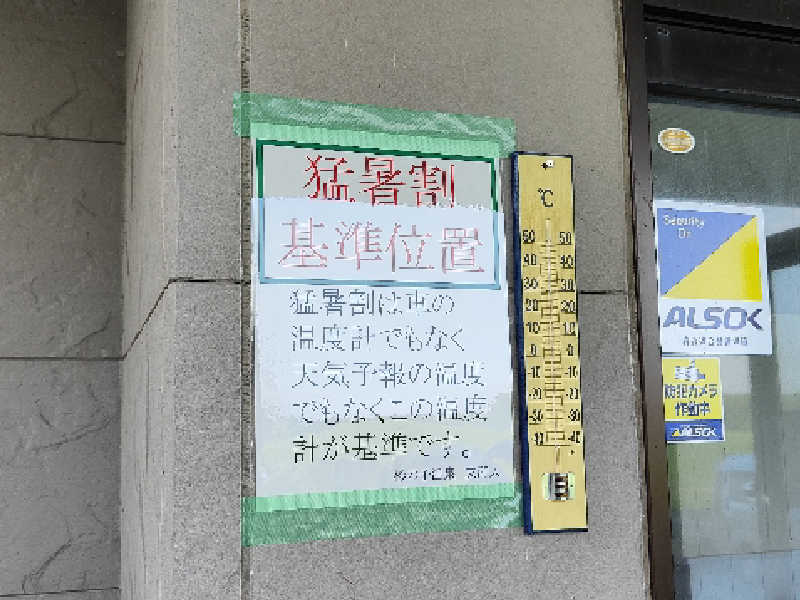 猛暑割
基準位置
猛暑割は車の
温度計でもなく
天気予報の温度
でもなくこの温度
計が基準です。
℃
50 50
40 40
30 30
20 20
10 10
0 0
-10 -10
-20 -20
-30 -30
-40 -40
Security
On
ALSOK
防犯カメラ
作動中
ALSOK